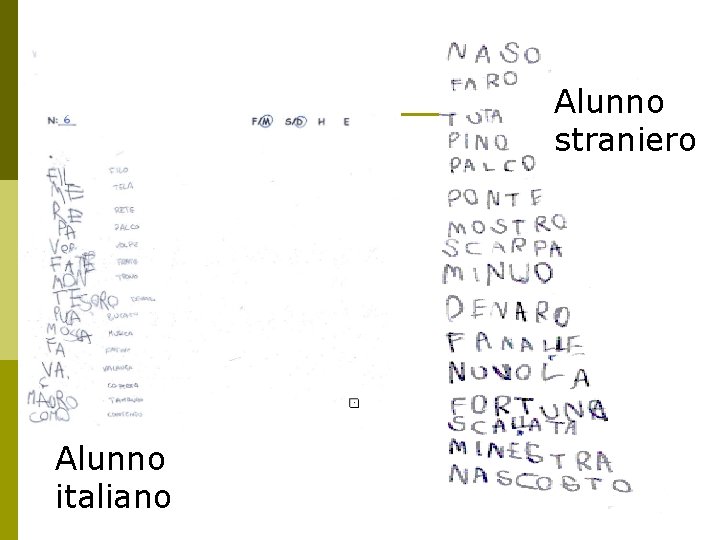 N: 6 F/M S/D H E
FIL FILO
ME TELA
RE RETE
PA PALCO
VOP VOLPE
FATE FRATE
MONE TRONO
TESORO DENARO
PUA BUCATO
MOSCA MUSICA
FA
VA. VALANGA
C
MAURO TAMBURO
COMO CONTENTO
Alunno
italiano
NASO
FARO
TUTA
PINO
PALCO
PONTE
MOSTRO
SCARPA
MINUO
DENARO
FANALE
NUVOLA
FORTUNA
SCALATA
MINESTRA
NASCOSTO
Alunno
straniero